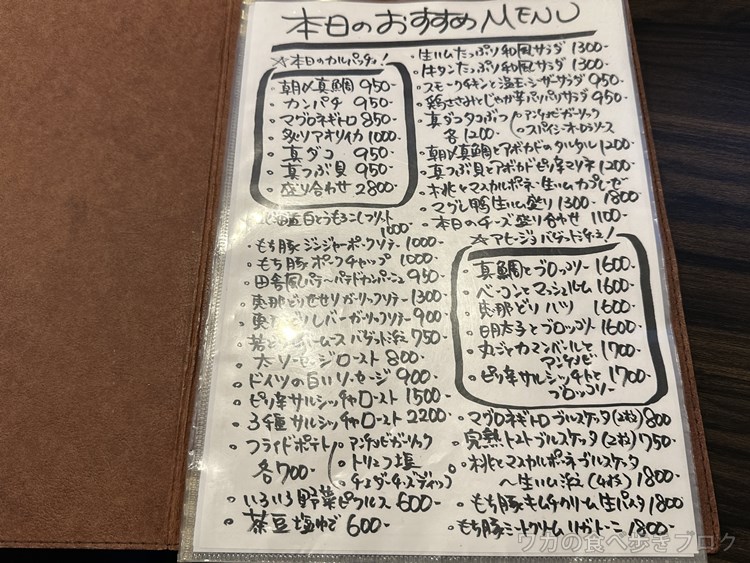 本日のおすすめMENU
☆本日のカルパッチョ!
朝〆真鯛 950
カンパチ 950-
マグロネギトロ 850
炙りアオリイカ 1000
真ダコ 950-
真つぶ貝 950-
盛り合わせ 2800
白とうもろこしリゾット
1000
もち豚ジンジャーポークソテー 1000-
もち豚ポークチャップ 1000-
田舎風パテ〜パテドカンパーニュ 950
恵那どりせせりガーリックソテー 1300
レバーガーリックソテー 900
ムースバゲット添え 750
太ソーセージロースト 800-
ドイツの白いソーセージ 900-
ピリ辛サルシッチャロースト 1500
3種サルシッチャロースト 2200
フライドポテト
各700-
アンチョビガーリック
トリュフ塩
チェダーチーズディップ
いろいろ野菜ピクルス 600-
茶豆塩ゆで 600-
生ハムたっぷり和風サラダ 1300-
牛タンたっぷり和風サラダ 1300-
スモークチキンと温玉シーザーサラダ 950-
鶏ささみとじゃが芋パリパリサラダ 950-
真ダコタコぶつ
各1200-
アンチョビガーリック
スパイシーオーロラソース
朝〆真鯛とアボカドのタルタル 1200
真つぶ貝とアボカドピリ辛マリネ 1200-
桃とマスカルポーネ生ハムカプレーゼ
1800
マグレ鴨生ハム盛り 1300-
本日のチーズ盛り合わせ 1100-
☆アヒージョバゲット添え!
真鯛とブロッコリー 1600-
ベーコンとマッシュルーム 1600-
恵那どりハツ 1600-
明太子とブロッコリー 1600-
丸ごとカマンベールと
アンチョビ
1700
ピリ辛サルシッチャと
ブロッコリー
1700-
マグロネギトロブルスケッタ(2粒) 800
完熟トマトブルスケッタ(2粒) 750-
桃とマスカルポーネブルスケッタ
〜生ハム添え(4粒) 1800-
もち豚キムチクリーム生パスタ 1800
もち豚ミートクリームリガトーニ 1800-
ワカの食べ歩きブログ